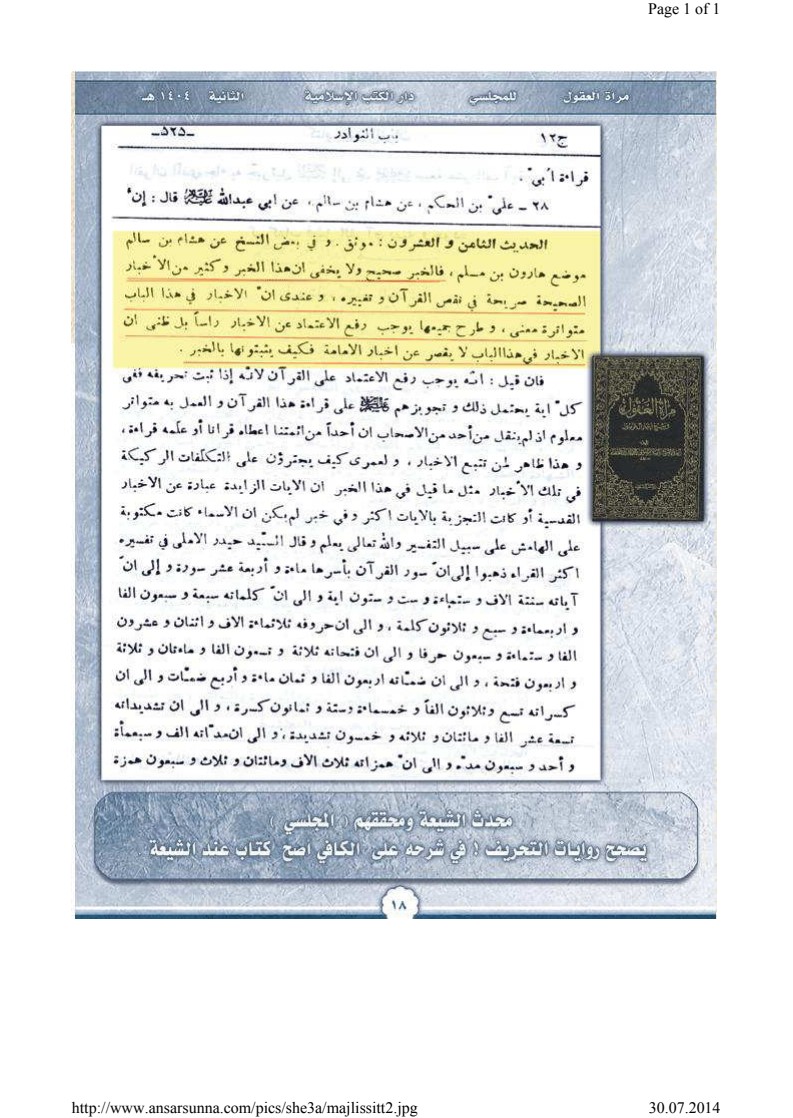 Page 1 of 1
مرآة العقول للمجلسي دار الكتب الإسلامية الثانية ١٤٠٤ هـ
ج١٢ باب النوادر ـ٥٢٥ـ
قراءة اُبيّ .
٢٨ ـ عليّ بن الحكم ، عن هشام بن سالم ، عن ابي عبدالله قال : إنّ
الحديث الثامن و العشرون : موثق . و في بعض النسخ عن هشام بن سالم
موضع هارون بن مسلم ، فالخبر صحيح ولا يخفى ان هذا الخبر و كثير من الأخبار
الصحيحة صريحة في نقص القرآن و تغييره ، و عندى انّ الاخبار في هذا الباب
متواترة معنى ، و طرح جميعها يوجب رفع الاعتماد عن الاخبار رأساً بل ظنى ان
الاخبار في هذا الباب لا يقصر عن اخبار الامامة فكيف يثبتونها بالخبر .
فان قيل : انّه يوجب رفع الاعتماد على القرآن لانّه إذا ثبت تحريفه ففى
كلّ اية يحتمل ذلك و تجويزهم على قراءة هذا القرآن و العمل به متواتر
معلوم اذ لم ينقل من أحد من الاصحاب ان أحداً من ائمتنا اعطاه قرانا أو علّمه قراءة ،
و هذا ظاهر لمن تتبع الاخبار ، و لعمرى كيف يجترؤن على التكلّفات الركيكة
في تلك الأخبار مثل ما قيل في هذا الخبر ان الايات الزايدة عبارة عن الاخبار
القدسية أو كانت التجزية بالايات اكثر و في خبر لم يكن ان الاسماء كانت مكتوبة
على الهامش على سبيل التفسير والله تعالى يعلم و قال السيّد حيدر الاملى في تفسيره
اكثر القراء ذهبوا إلى انّ سور القرآن بأسرها ماءة و أربعة عشر سورة و إلى انّ
آياته ستة الاف و ستماءة و ست و ستون اية و الى انّ كلماته سبعة و سبعون الفا
و اربعماءة و سبع و ثلاثون كلمة ، و الى ان حروفه ثلاثماءة الاف و اثنان و عشرون
الفا و ستماءة و سبعون حرفا و الى ان فتحاته ثلاثة و تسعون الفا و ماءتان و ثلاثة
و اربعون فتحة ، و الى ان ضمّاته اربعون الفا و ثمان ماءة و أربع ضمّات و الى ان
كسراته تسع وثلاثون الفاً و خمسماءة وستة و ثمانون كسرة ، و الى ان تشديداته
تسعة عشر الفا و مائتان و ثلاثه و خمسون تشديدة ، و الى ان مدّاته الف و سبعمأة
و أحد و سبعون مدّه و الى انّ همزاته ثلاث الاف ومائتان و ثلاث و سبعون همزة
مرآة العقول
محدث الشيعة ومحققهم ( المجلسي )
يصحح روايات التحريف ! في شرحه على الكافي أصح كتاب عند الشيعة
١٨
http://www.ansarsunna.com/pics/she3a/majlissitt2.jpg 30.07.2014